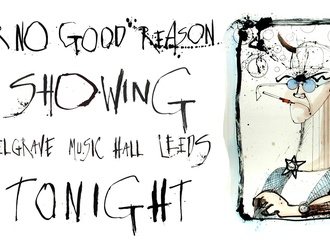 R NO GOOD REASON
SHOWING
ELGRAVE MUSIC HALL LEEDS
TONIGHT